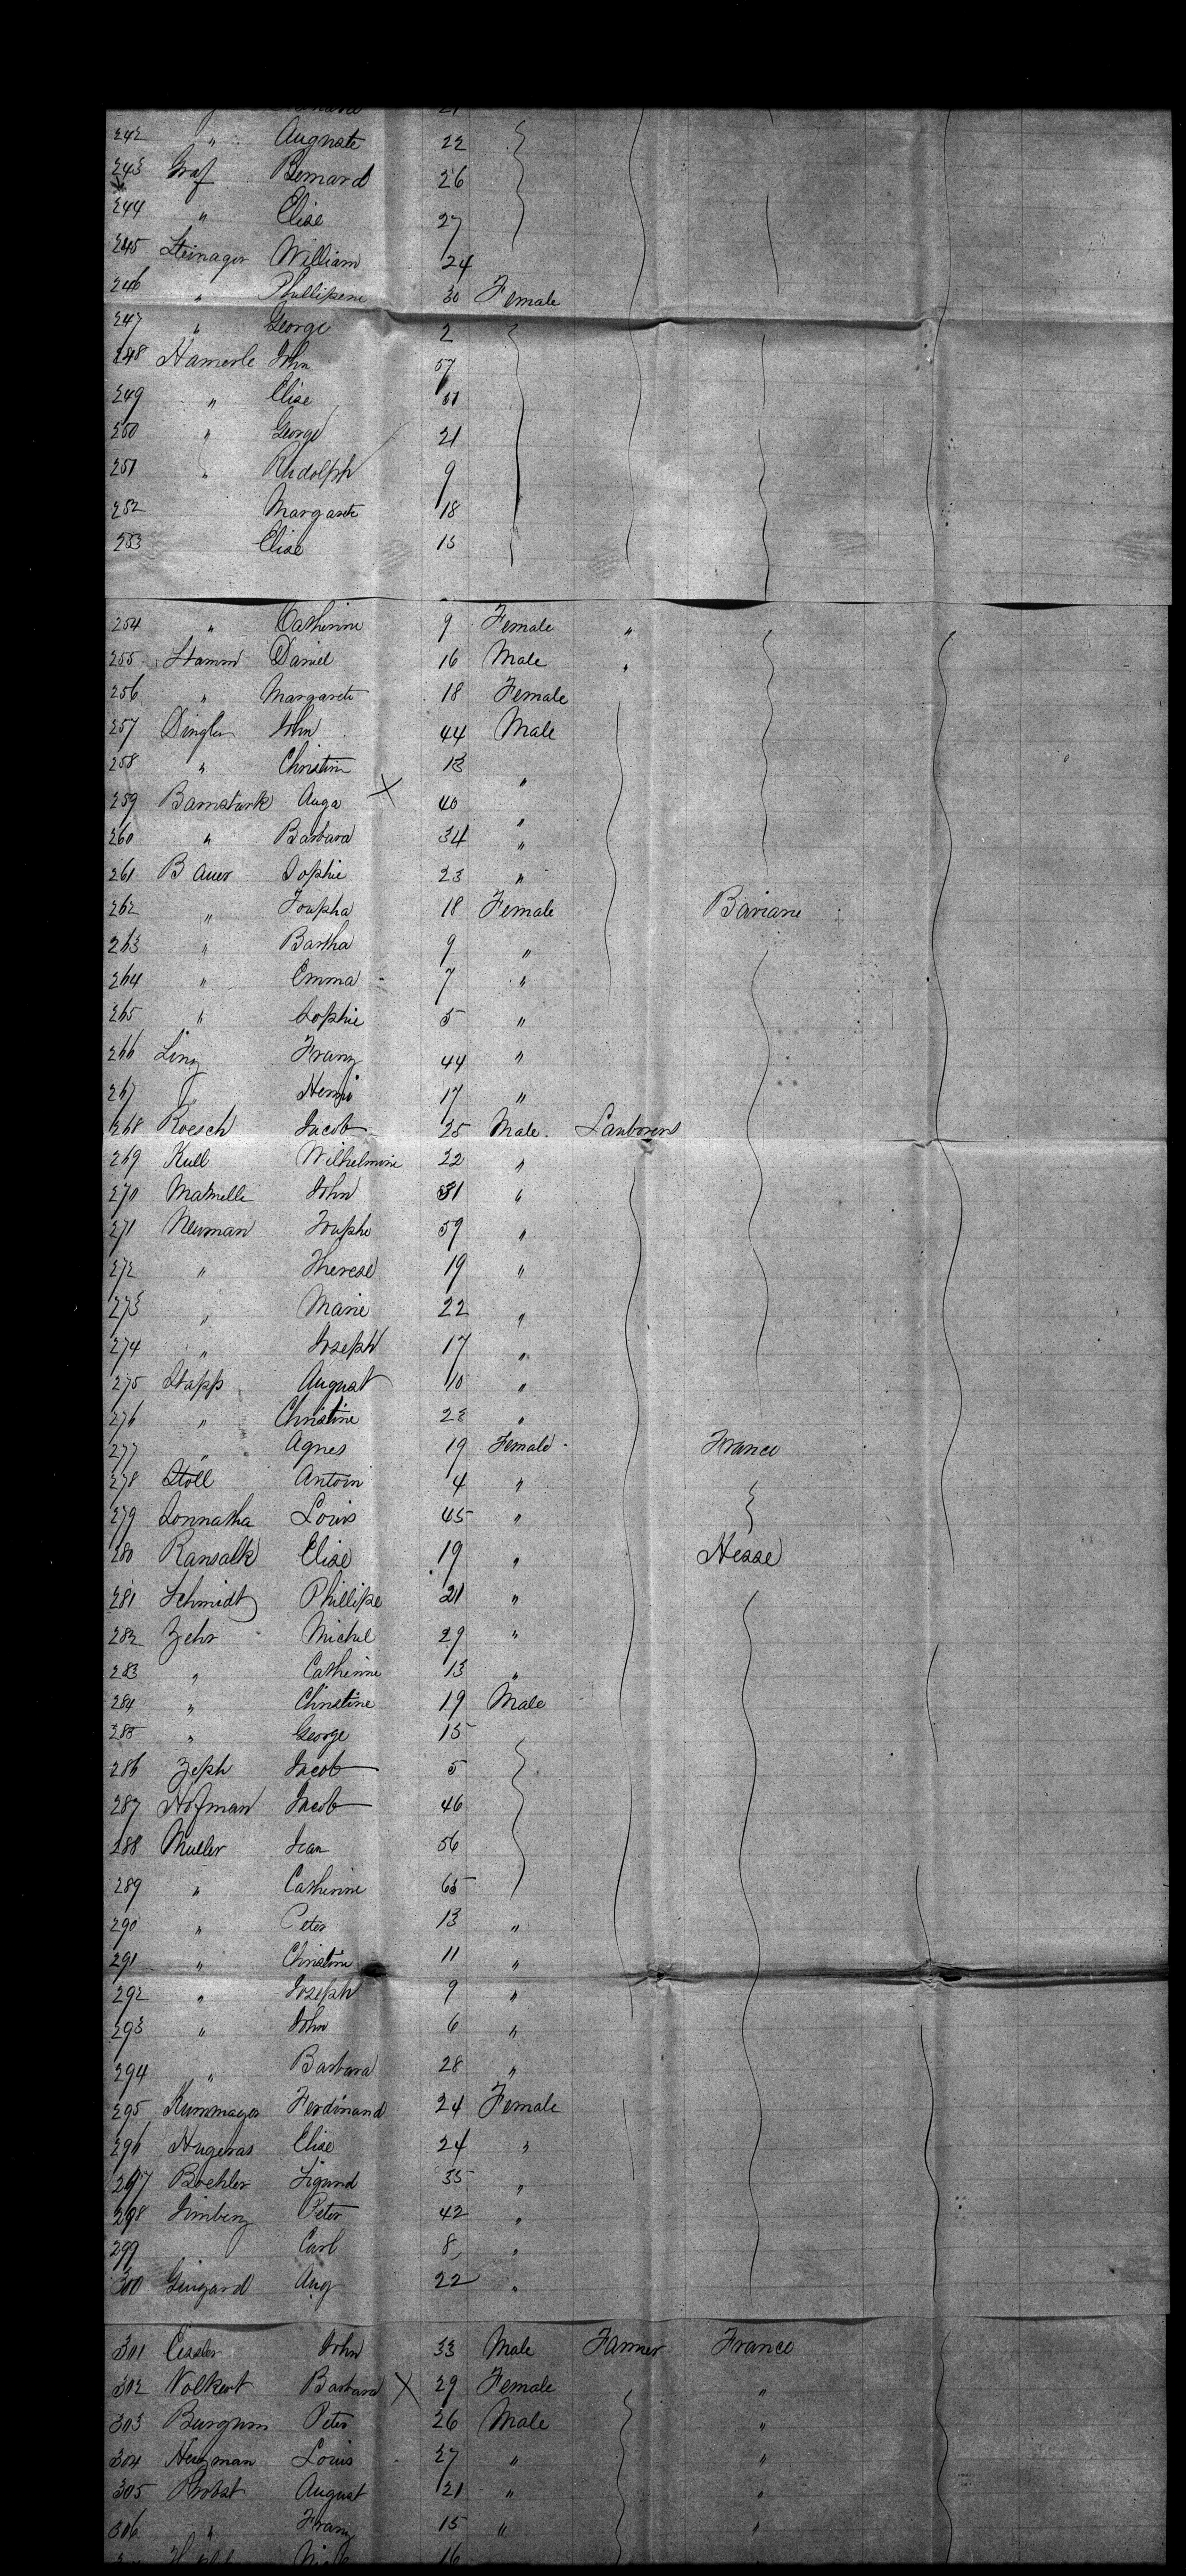 242 " Auguste 22
243 Graf Bernard 26
244 " Elise 27
245 Steinager William 24
246 " Phillipene 30 Female
247 " George 2
248 Hamerle John 57
249 " Elise 51
250 " George 21
251 " Rudolph 9
252 Margarete 18
253 Elise 15
254 " Catherine 9 Female "
255 Stamm Daniel 16 Male "
256 " Margarete 18 Female
257 Dingler John 44 Male
258 " Christine 13 "
259 Barnstark Auga X 40 "
260 " Barbara 34 "
261 Bauer Sophie 23 "
262 " Josepha 18 Female Bariare
263 " Bartha 9 "
264 " Emma 7 "
265 " Sophie 5 "
266 Linz Franz 44 "
267 " Henri 17 "
268 Roesch Jacob 25 Male Laborers
269 Kull Wilhelmine 22 "
270 John "
271 Neuman Josephe 59 "
272 " Therese 19 "
273 " Marie 22 "
274 " Joseph 17 "
275 Stapp August 10 "
276 " Christine 23 "
277 " Agnes 19 Female France
278 Stoll Antoin 4 "
279 Louis 45 "
280 Ransalk Elise 19 " Hesse
281 Schmidt Phillipe 21 "
282 Zehr Michel 29 "
283 " Catherine 13 "
284 " Christine 19 Male
285 " George 15
286 Zeph Jacob 5
287 Hofman Jacob 46
288 Muller Jean 56
289 " Catherine 65
290 " Peter 13 "
291 " Christine 11 "
292 " Joseph 9 "
293 " John 6 "
294 " Barbara 28 "
295 Kummayer Ferdinand 24 Female
296 Hugeras Elise 24 "
297 Boehler Sigund 35 "
298 Peter 42 "
299 Carl 8 "
300 Gingard Aug 22 "
301 Cessler John 33 Male Farmer France
302 Volkert Barbara X 29 Female "
303 Peter 26 Male "
304 Herzman Louis 27 " "
305 Probst August 21 " "
306 " Franz 15 " "
16